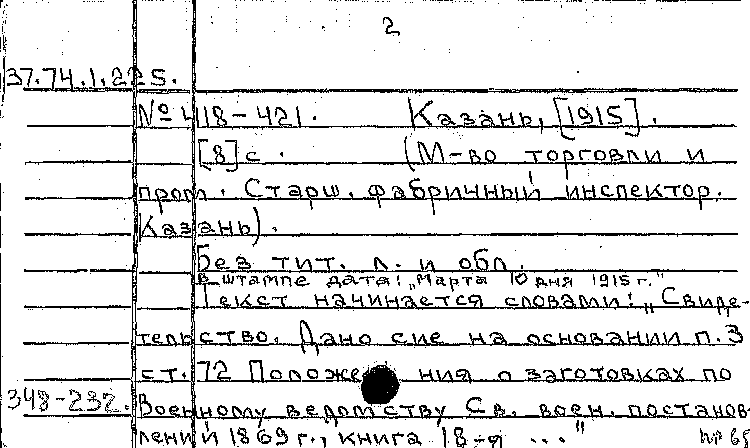 2
37.74.1.225.
№ 418-421. Казань, [1915].
[8] с. (М-во торговли и
пром. Старш. фабричный инспектор.
Казань).
Без тит. л. и обл.
В штампе дата: „Марта 10 дня 1915 г."
Текст начинается словами: „Свиде-
тельство. Дано сие на основании п. 3
ст. 72 Положения о заготовках по
348-232. Военному ведомству Св. воен. постанов-
лений 1869 г., книга 18-я ..."